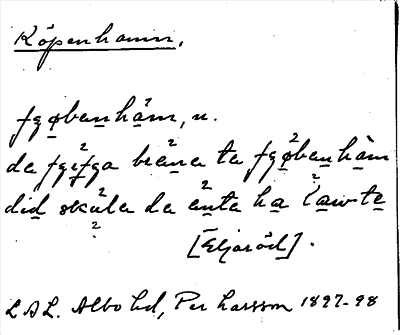 Köpenhamn.
fqøbenhåm, n.
de bɩena ta fqøbenhåm
did skula da enta ha
[Eljaröd].
LAL. Albo hd, Per Larsson 1897-98